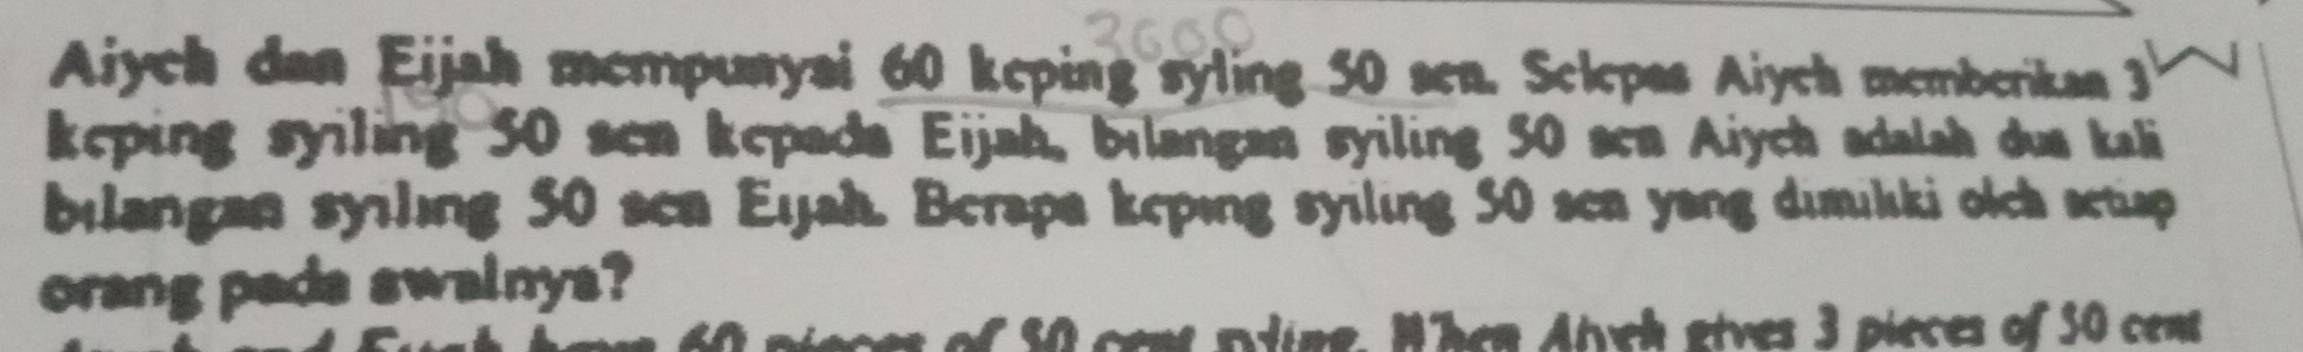 3600
Aiych dan Eijah mempunyai 60 keping syling 50 sen. Selepas Aiych memberikan 3
keping syiling 50 sen kepada Eijah, bilangan syiling 50 sen Aiych adalah dua kali
bilangan syiling 50 sen Eijah. Berapa keping syiling 50 sen yang dimiliki oleh setiap
orang pada awalnya?
60 pieces of 50 cent syling. When Aiych gives 3 pieces of 50 cent